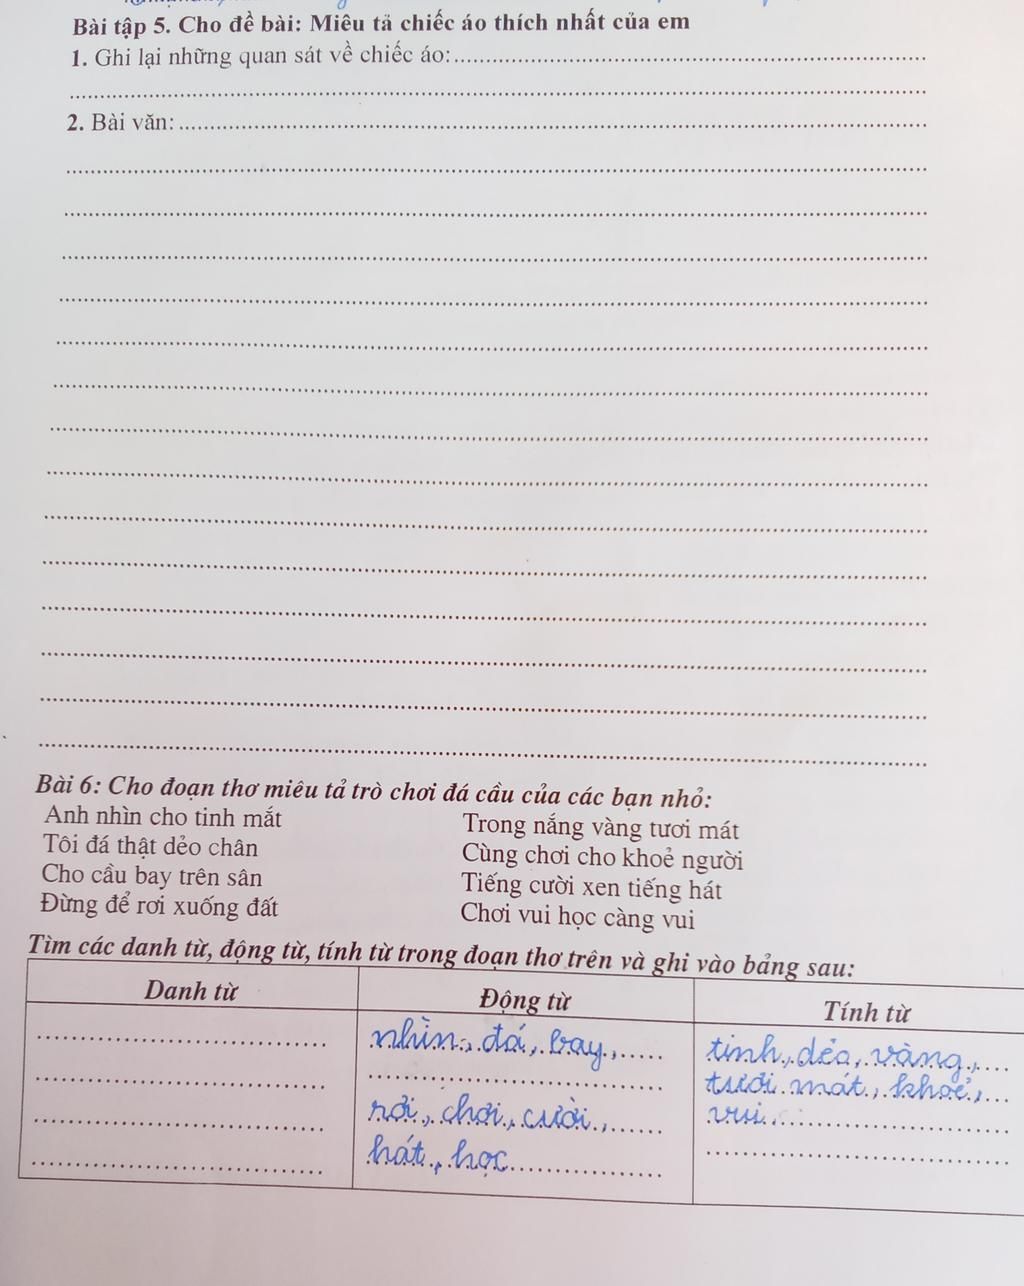 Bài tập 5. Cho đề bài: Miêu tả chiếc áo thích nhất của em
1. Ghi lại những quan sát về chiếc áo:
2. Bài văn:
Bài 6: Cho đoạn thơ miêu tả trò chơi đá cầu của các bạn nhỏ:
Anh nhìn cho tinh mắt
Tôi đá thật dẻo chân
Cho cầu bay trên sân
Đừng để rơi xuống đất
Trong nắng vàng tươi mát
Cùng chơi cho khoẻ người
Tiếng cười xen tiếng hát
Chơi vui học càng vui
Tìm các danh từ, động từ, tính từ trong đoạn thơ trên và ghi vào bảng sau:
Danh từ
Động từ
Tính từ
nhìn, đá, bay,
rơi, chơi, cười,
hát, học
tinh, dẻo, vàng,
tươi mát, khoẻ,
vui,